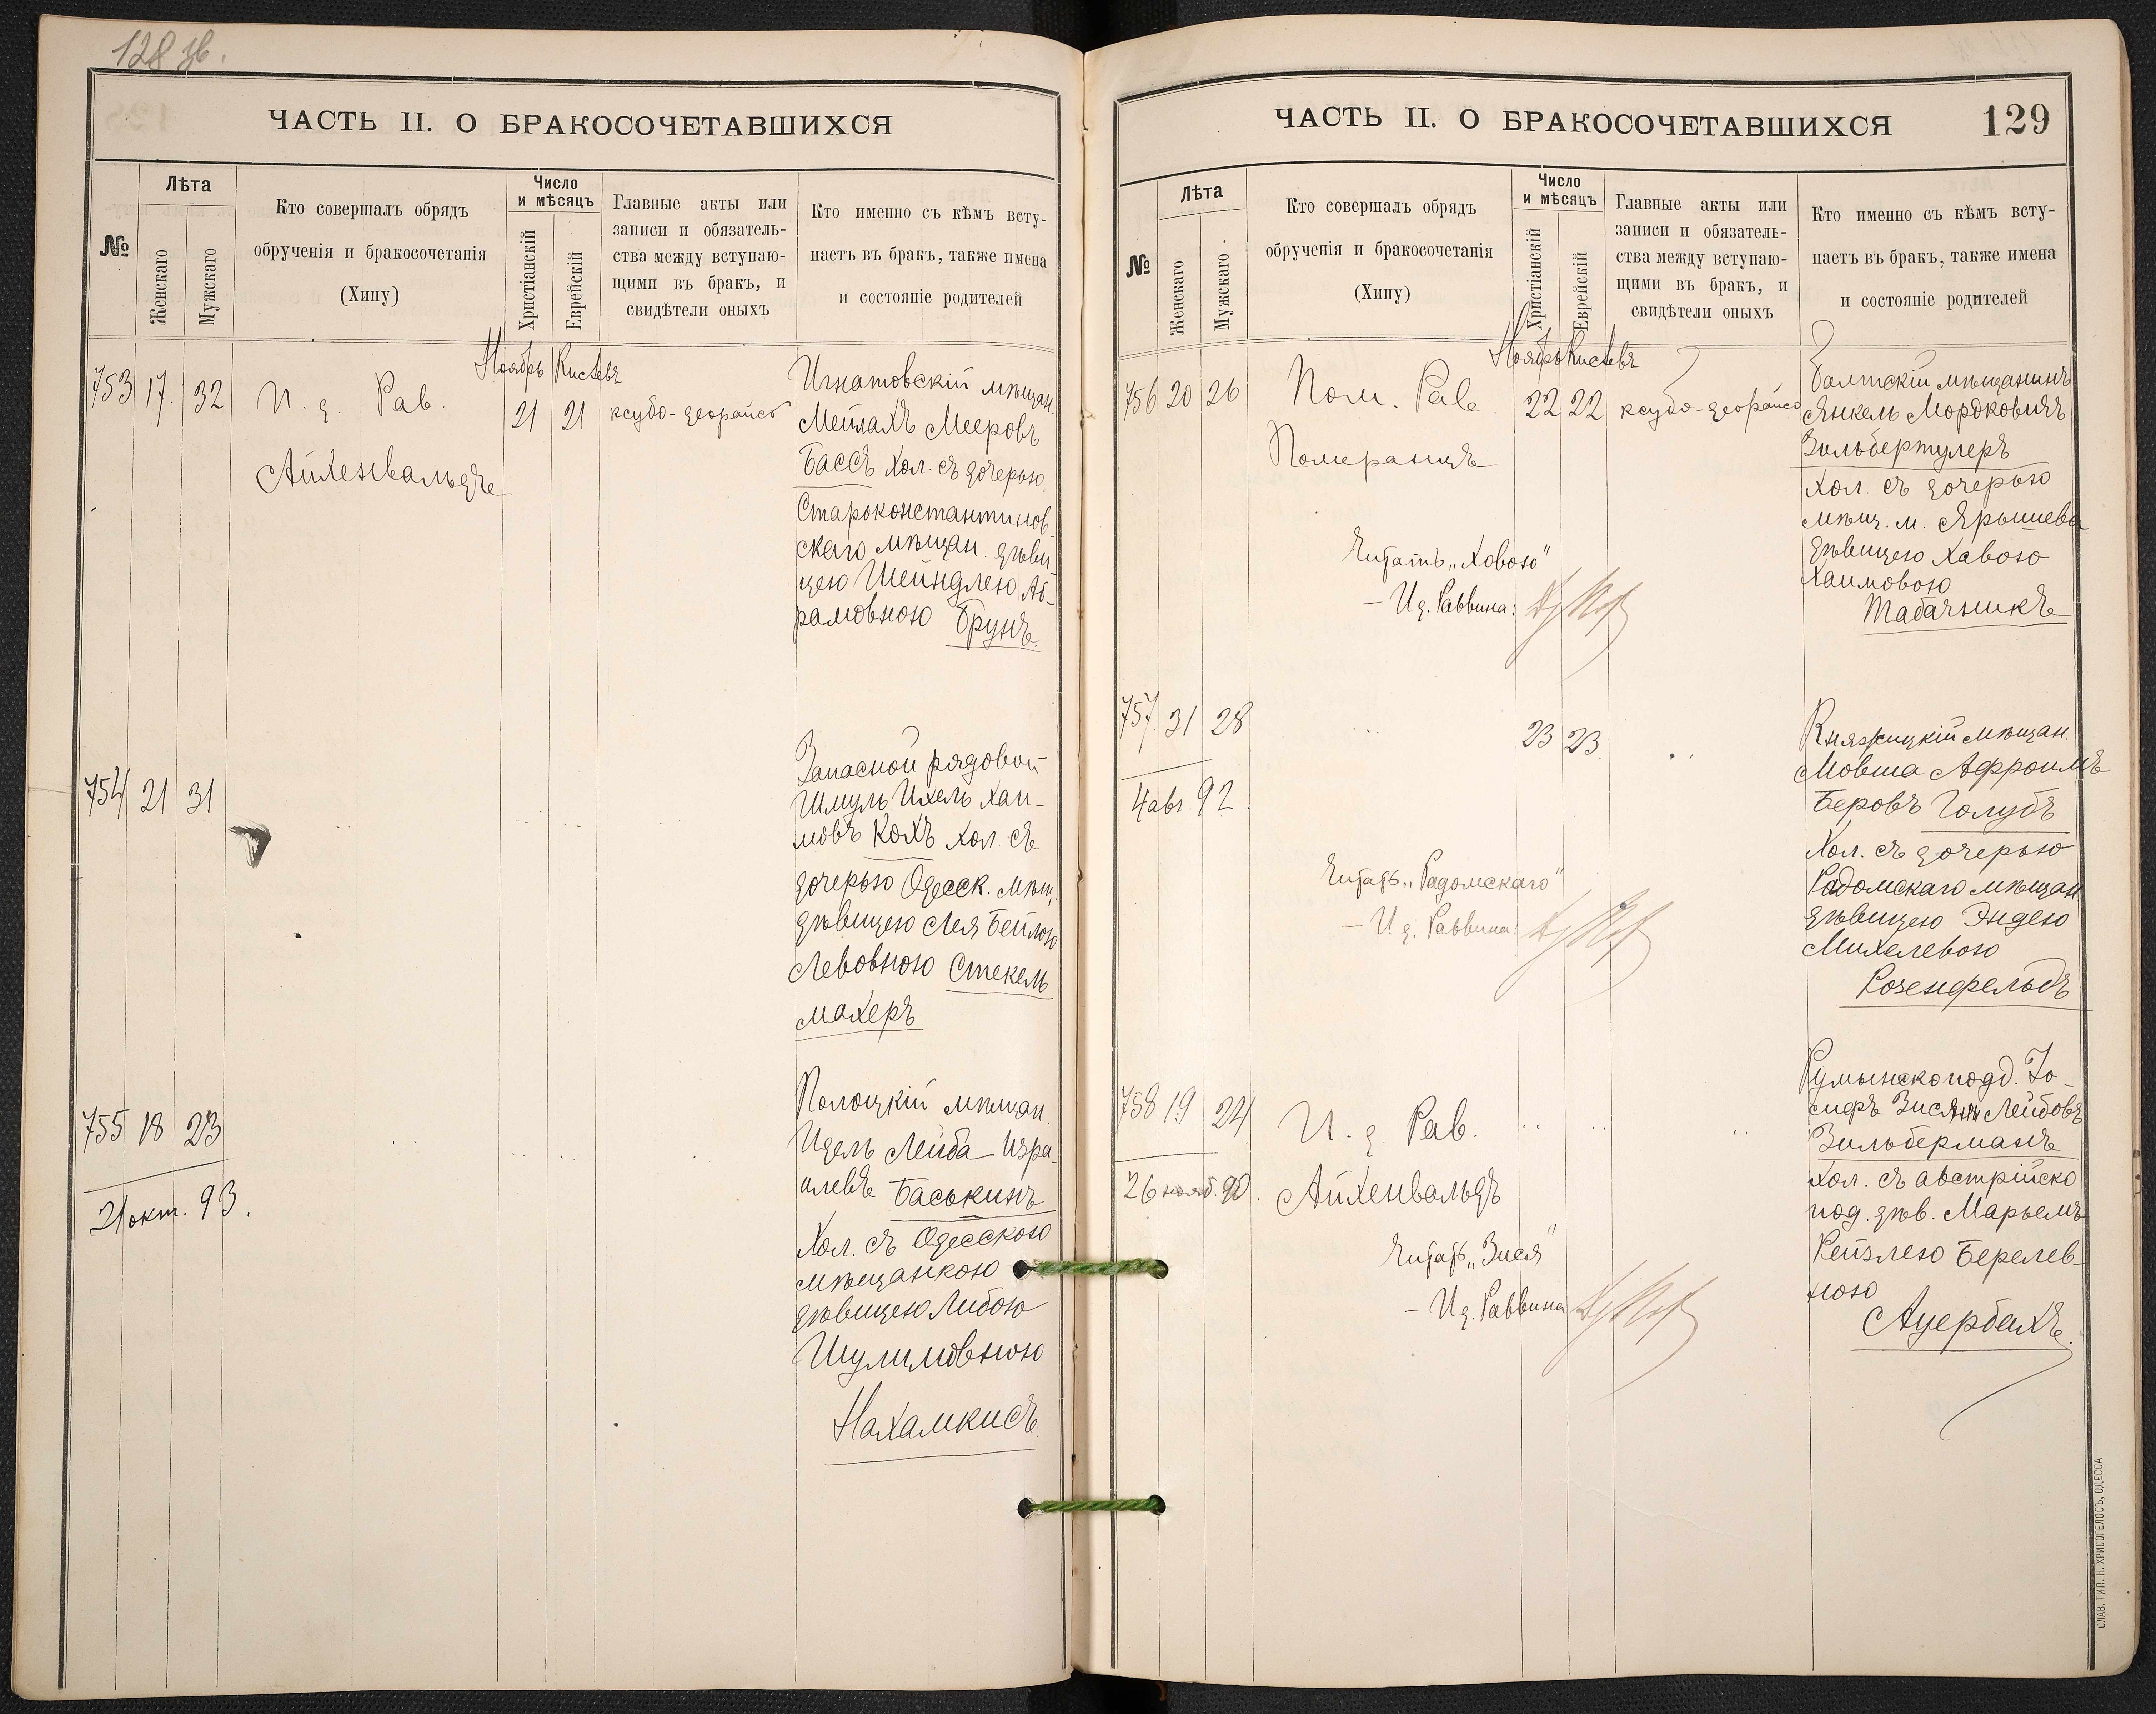 128 об.
ЧАСТЬ II. О БРАКОСОЧЕТАВШИХСЯ
№
Лѣта
Женскаго
Мужскаго
Кто совершалъ обрядъ
обрученія и бракосочетанія
(Хипу)
Число
и мѣсяцъ
Христіанскій
Еврейскій
Главные акты или
записи и обязатель-
ства между вступаю-
щими въ бракъ, и
свидѣтели оныхъ
Кто именно съ кѣмъ всту-
паетъ въ бракъ, также имена
и состояніе родителей
Ноябрь Кислевъ
753 17. 32 И. д. Рав. 21 21 ксубо-деорайсо
Айхенвальдъ
Игнатовскій мѣщан.
Мейлахъ Мееровъ
Бассъ хол. съ дочерью
Староконстантинов
скаго мѣщан. дѣви
цею Шейндлею Аб-
рамовною Брунъ.
754 21 31
Запасной рядовой
Шмуль Ихель Хаи-
мовъ Кохъ хол. съ
дочерью Одесск. мѣщ.
дѣвицею Лея Бейлою
Левовною Стекель
махеръ
755 18 23
21 окт. 93.
Полоцкій мѣщан.
Идель Лейба Изра-
илевъ Баськинъ
Хол. съ Одесскою
мѣщанкою
дѣвицею Либою
Шулимовною
Нахамкисъ
ЧАСТЬ II. О БРАКОСОЧЕТАВШИХСЯ
129
№
Лѣта
Женскаго
Мужскаго.
Кто совершалъ обрядъ
обрученія и бракосочетанія
(Хипу)
Число
и мѣсяцъ
Христіанскій
Еврейскій
Главные акты или
записи и обязатель-
ства между вступаю-
щими въ бракъ, и
свидѣтели оныхъ
Кто именно съ кѣмъ всту-
паетъ въ бракъ, также имена
и состояніе родителей
Ноябрь Кислевъ
756 20 26 Пом. Рав. 22 22 ксубо-деорайсо
Померанцъ
Балтскій мѣщанинъ
Янкель Мордковичъ
Зильбертулеръ
хол. съ дочерью
мѣщ. м. Ярышева
дѣвицею Хавою
Хаимовою
Табачникъ
Читать „Ховою"
— И д. Раввина:
757 31 28 23 23.
4 авг. 92.
Княжицкій мѣщан.
Мовша Афроимъ
Беровъ Голубъ
Хол. съ дочерью
Радомскаго мѣщан.
дѣвицею Эндею
Михелевою
Розенфельдъ
Читать „Радомскаго"
— И д. Раввина:
758 19 24 И. д. Рав.
26 нояб. 90. Айхенвальдъ
Румынскоподд. Іо-
сифъ Зися Лейбовъ
Зильберманъ
Хол. съ австрійско
под. дѣв. Марьемъ
Рейзлею Берелев-
ною
Ауербахъ.
Читать „Зися"
— И д. Раввина
СЛАВ. ТИП. Н. ХРИСОГЕЛОСЪ, ОДЕССА